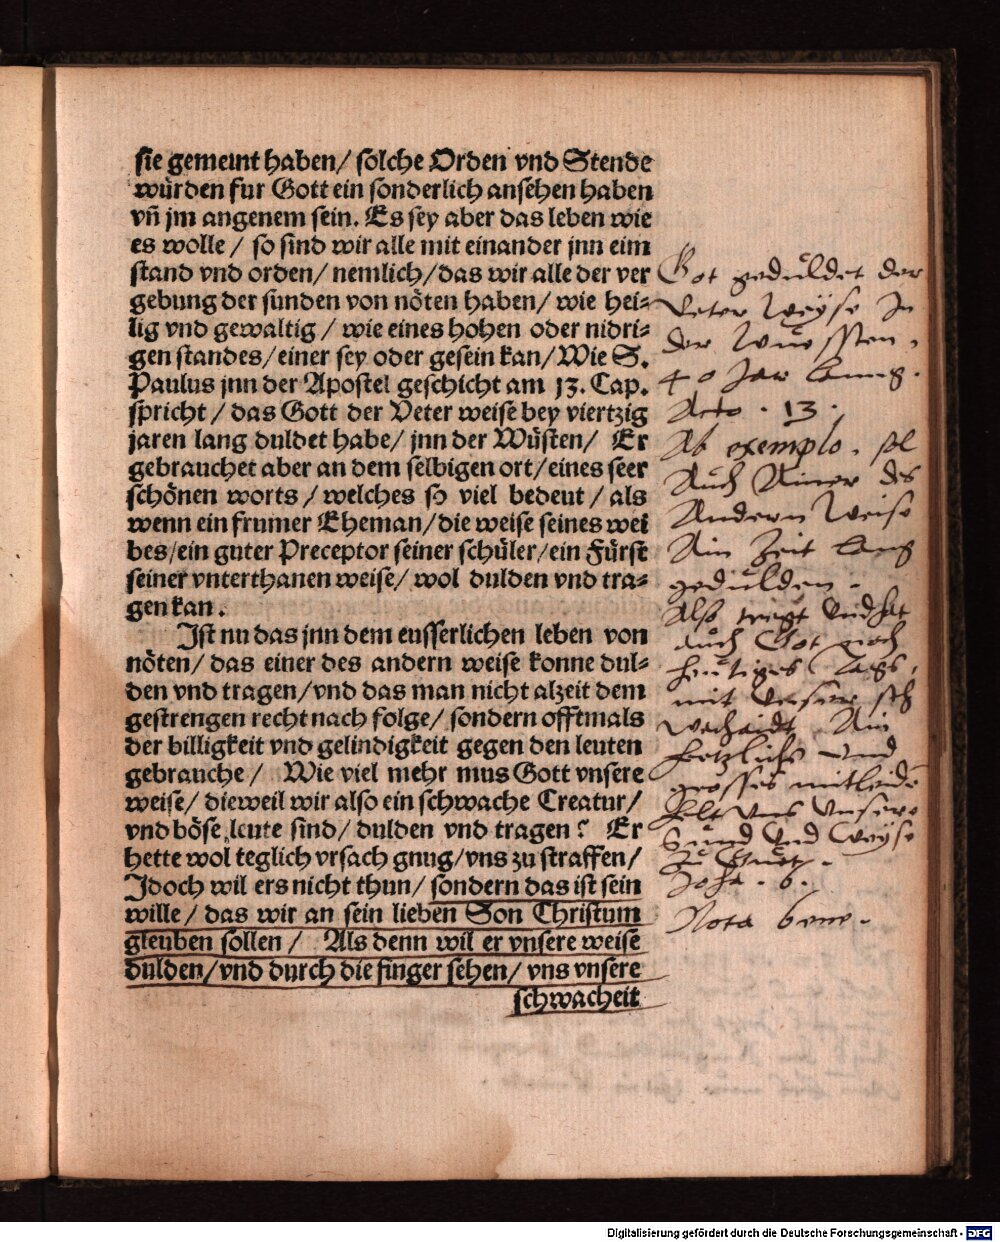 sie gemeint haben/ solche Orden vnd Stende
würden fur Gott ein sonderlich ansehen haben
vñ jm angenem sein. Es sey aber das leben wie
es wolle / so sind wir alle mit einander jnn eim
stand vnd orden/ nemlich/ das wir alle der ver
gebung der sunden von nöten haben/ wie hei⸗
lig vnd gewaltig / wie eines hohen oder nidri⸗
gen standes/ einer sey oder gesein kan/ Wie S.
Paulus jnn der Apostel geschicht am 13. Cap.
spricht / das Gott der Veter weise bey viertzig
jaren lang duldet habe/ jnn der Wüsten/ Er
gebrauchet aber an dem selbigen ort/ eines seer
schönen worts / welches so viel bedeut / als
wenn ein frumer Eheman/ die weise seines wei
bes/ ein guter Preceptor seiner schüler/ ein Fürst
seiner vnterthanen weise/ wol dulden vnd tra⸗
gen kan.
Ist nu das jnn dem eusserlichen leben von
nöten/ das einer des andern weise konne dul⸗
den vnd tragen/ vnd das man nicht alzeit dem
gestrengen recht nach folge/ sondern offtmals
der billigkeit vnd gelindigkeit gegen den leuten
gebrauche / Wie viel mehr mus Gott vnsere
weise/ dieweil wir also ein schwache Creatur/
vnd böse leute sind/ dulden vnd tragen? Er
hette wol teglich vrsach gnug/ vns zu straffen/
Jdoch wil ers nicht thun/ sondern das ist sein
wille / das wir an sein lieben Son Christum
gleuben sollen / Als denn wil er vnsere weise
dulden/ vnd durch die finger sehen/ vns vnsere
schwacheit
Got geduldet der
Veter Weyse In
der Wuesten,
40 Jar lang.
Acto. 13.
Ab exemplo. sol
Auch Ainer des
Andern Weise
Ain Zeit lang
gedulden.
Also tregt
auch Got noch
heutiges tags,
mit Unser sch
wachait, Ain
hertzlichs Und
grosses mitleide
helt Uns Unsere
Sund Und Weyse
Zu Guet.
Joha. 6.
Nota bene.
Digitalisierung gefördert durch die Deutsche Forschungsgemeinschaft - DFG